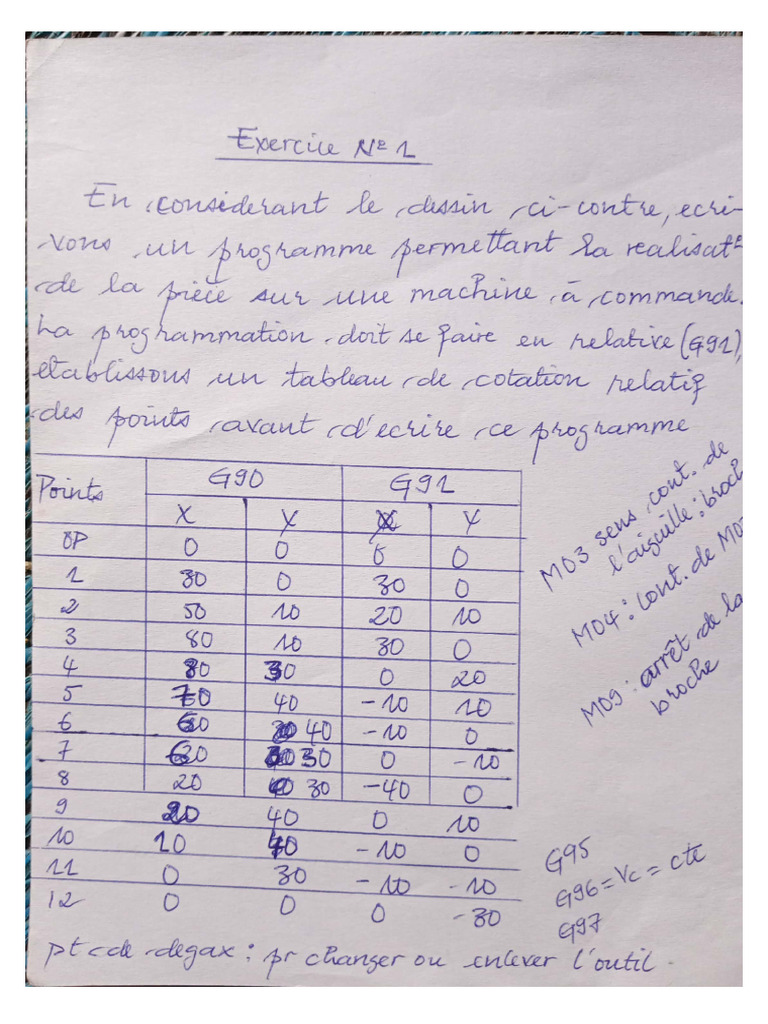 Exercice Nº 1
En considerant le dessin ci-contre, ecri-
vons un programme permettant la realisat°
de la pièce sur une machine à commande.
La programmation doit se faire en relative (G91),
etablissons un tableau de cotation relatif
des points avant d'ecrire ce programme
Points G90 G91
X Y X Y
OP 0 0 0 0
1 30 0 30 0
2 50 10 20 10
3 80 10 30 0
4 80 30 0 20
5 70 40 -10 10
6 60 40 -10 0
7 60 30 0 -10
8 20 30 -40 0
9 20 40 0 10
10 10 40 -10 0
11 0 30 -10 -10
12 0 0 0 -30
pt de degax : pr changer ou enlever l'outil.
M03 sens cont. de
l'aiguille : broch
M04 : cont. de M03
M09 : arrêt de la
broche
G95
G96 = Vc = cte
G97